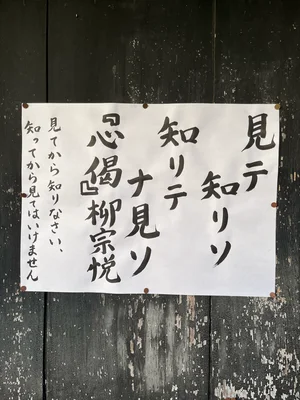 見テ
知リソ
知リテ
ナ見ソ
『心偈』柳宗悦
見てから知りなさい、
知ってから見てはいけません